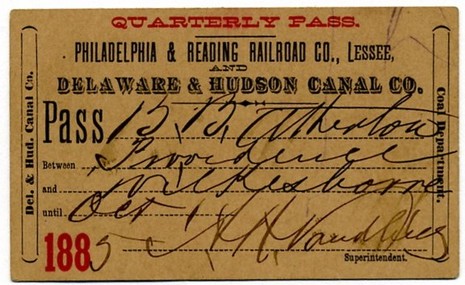 QUARTERLY PASS.
PHILADELPHIA & READING RAILROAD CO., LESSEE,
AND
DELAWARE & HUDSON CANAL CO.
Del. & Hud. Canal Co.
Pass B. B. Atherton
Between Providence
and Wilkesbarre
until Oct 1
1885
Superintendent.
Coal Department.